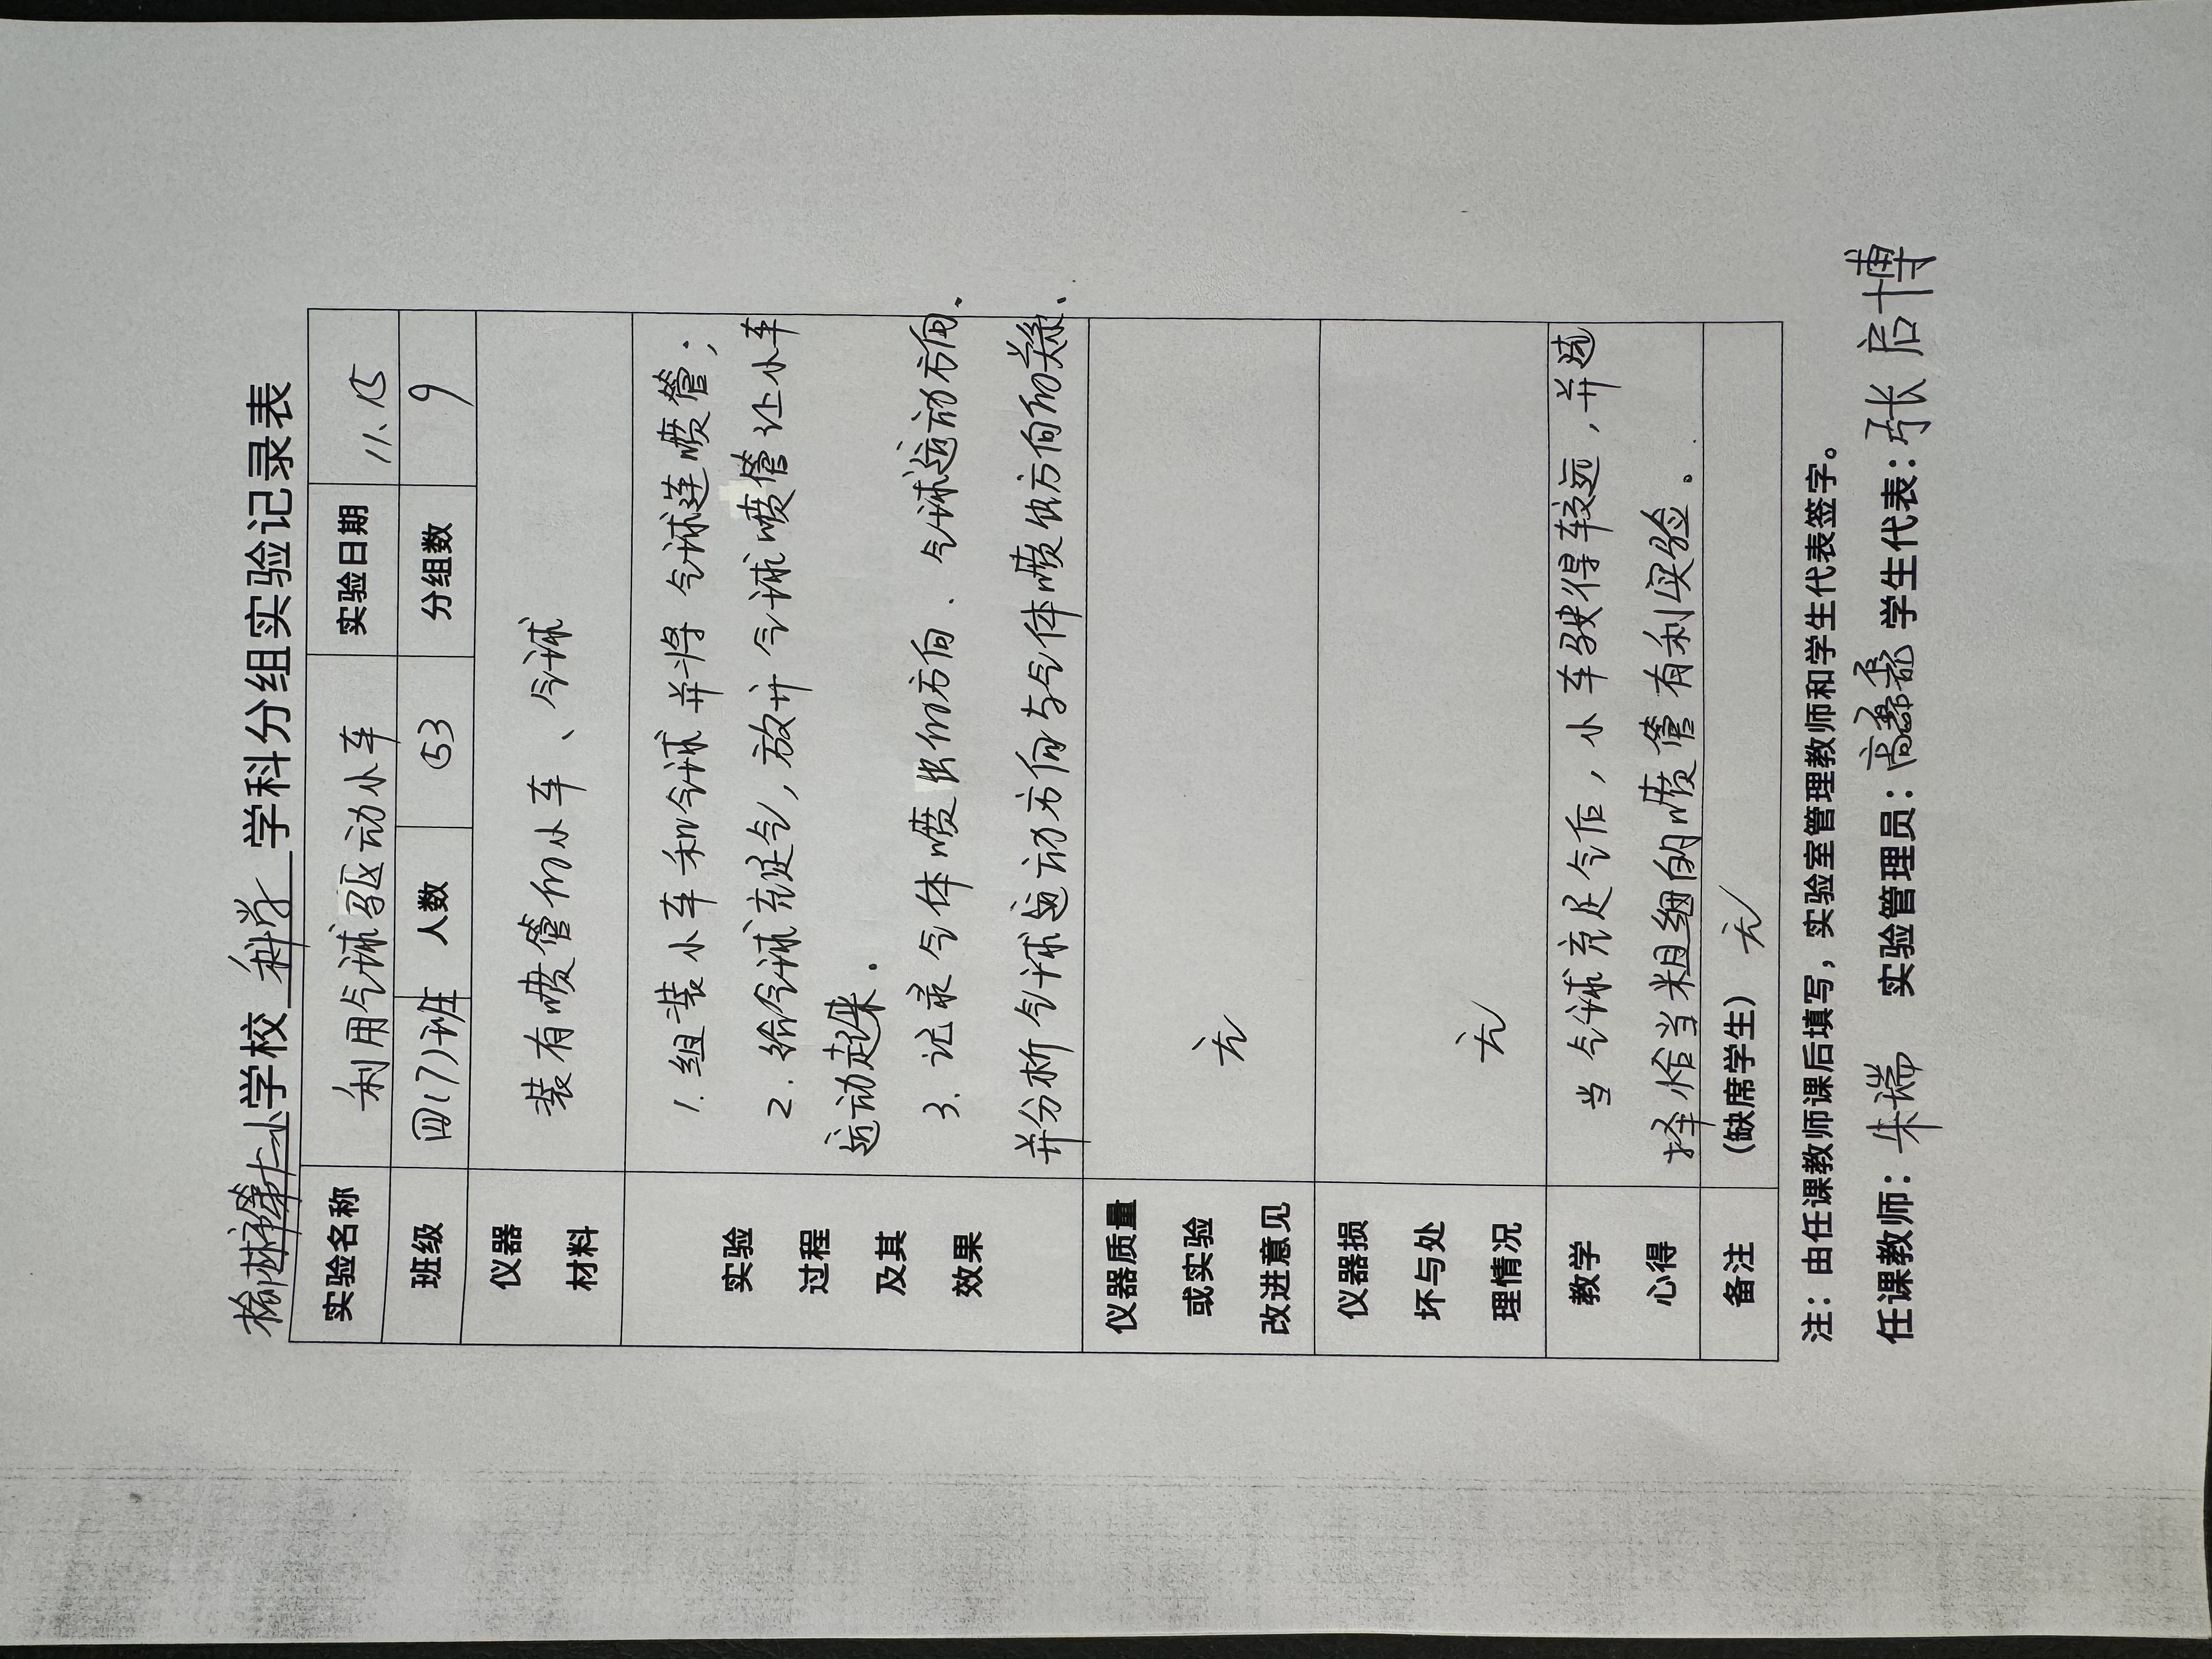 榆林第十小学校 科学 学科分组实验记录表
实验名称 利用气球驱动小车 实验日期 11.15
班级 四(7)班 人数 53 分组数 9
仪器
材料
装有喷管的小车、气球
实验
过程
及其
效果
1. 组装小车和气球并将气球连喷管；
2. 给气球充足气，放计气球喷管让小车
运动起来.
3. 记录气体喷出的方向、气球运动方向、
并分析气球运动方向与气体喷出方向的关系.
仪器质量
或实验
改进意见
无
仪器损
坏与处
理情况
无
教学
心得
当气球充足气后，小车驶得较远，并选
择恰当粗细的喷管有利实验。
备注 (缺席学生) 无
注：由任课教师课后填写，实验室管理教师和学生代表签字。
任课教师：朱端 实验管理员：高 学生代表：张启博